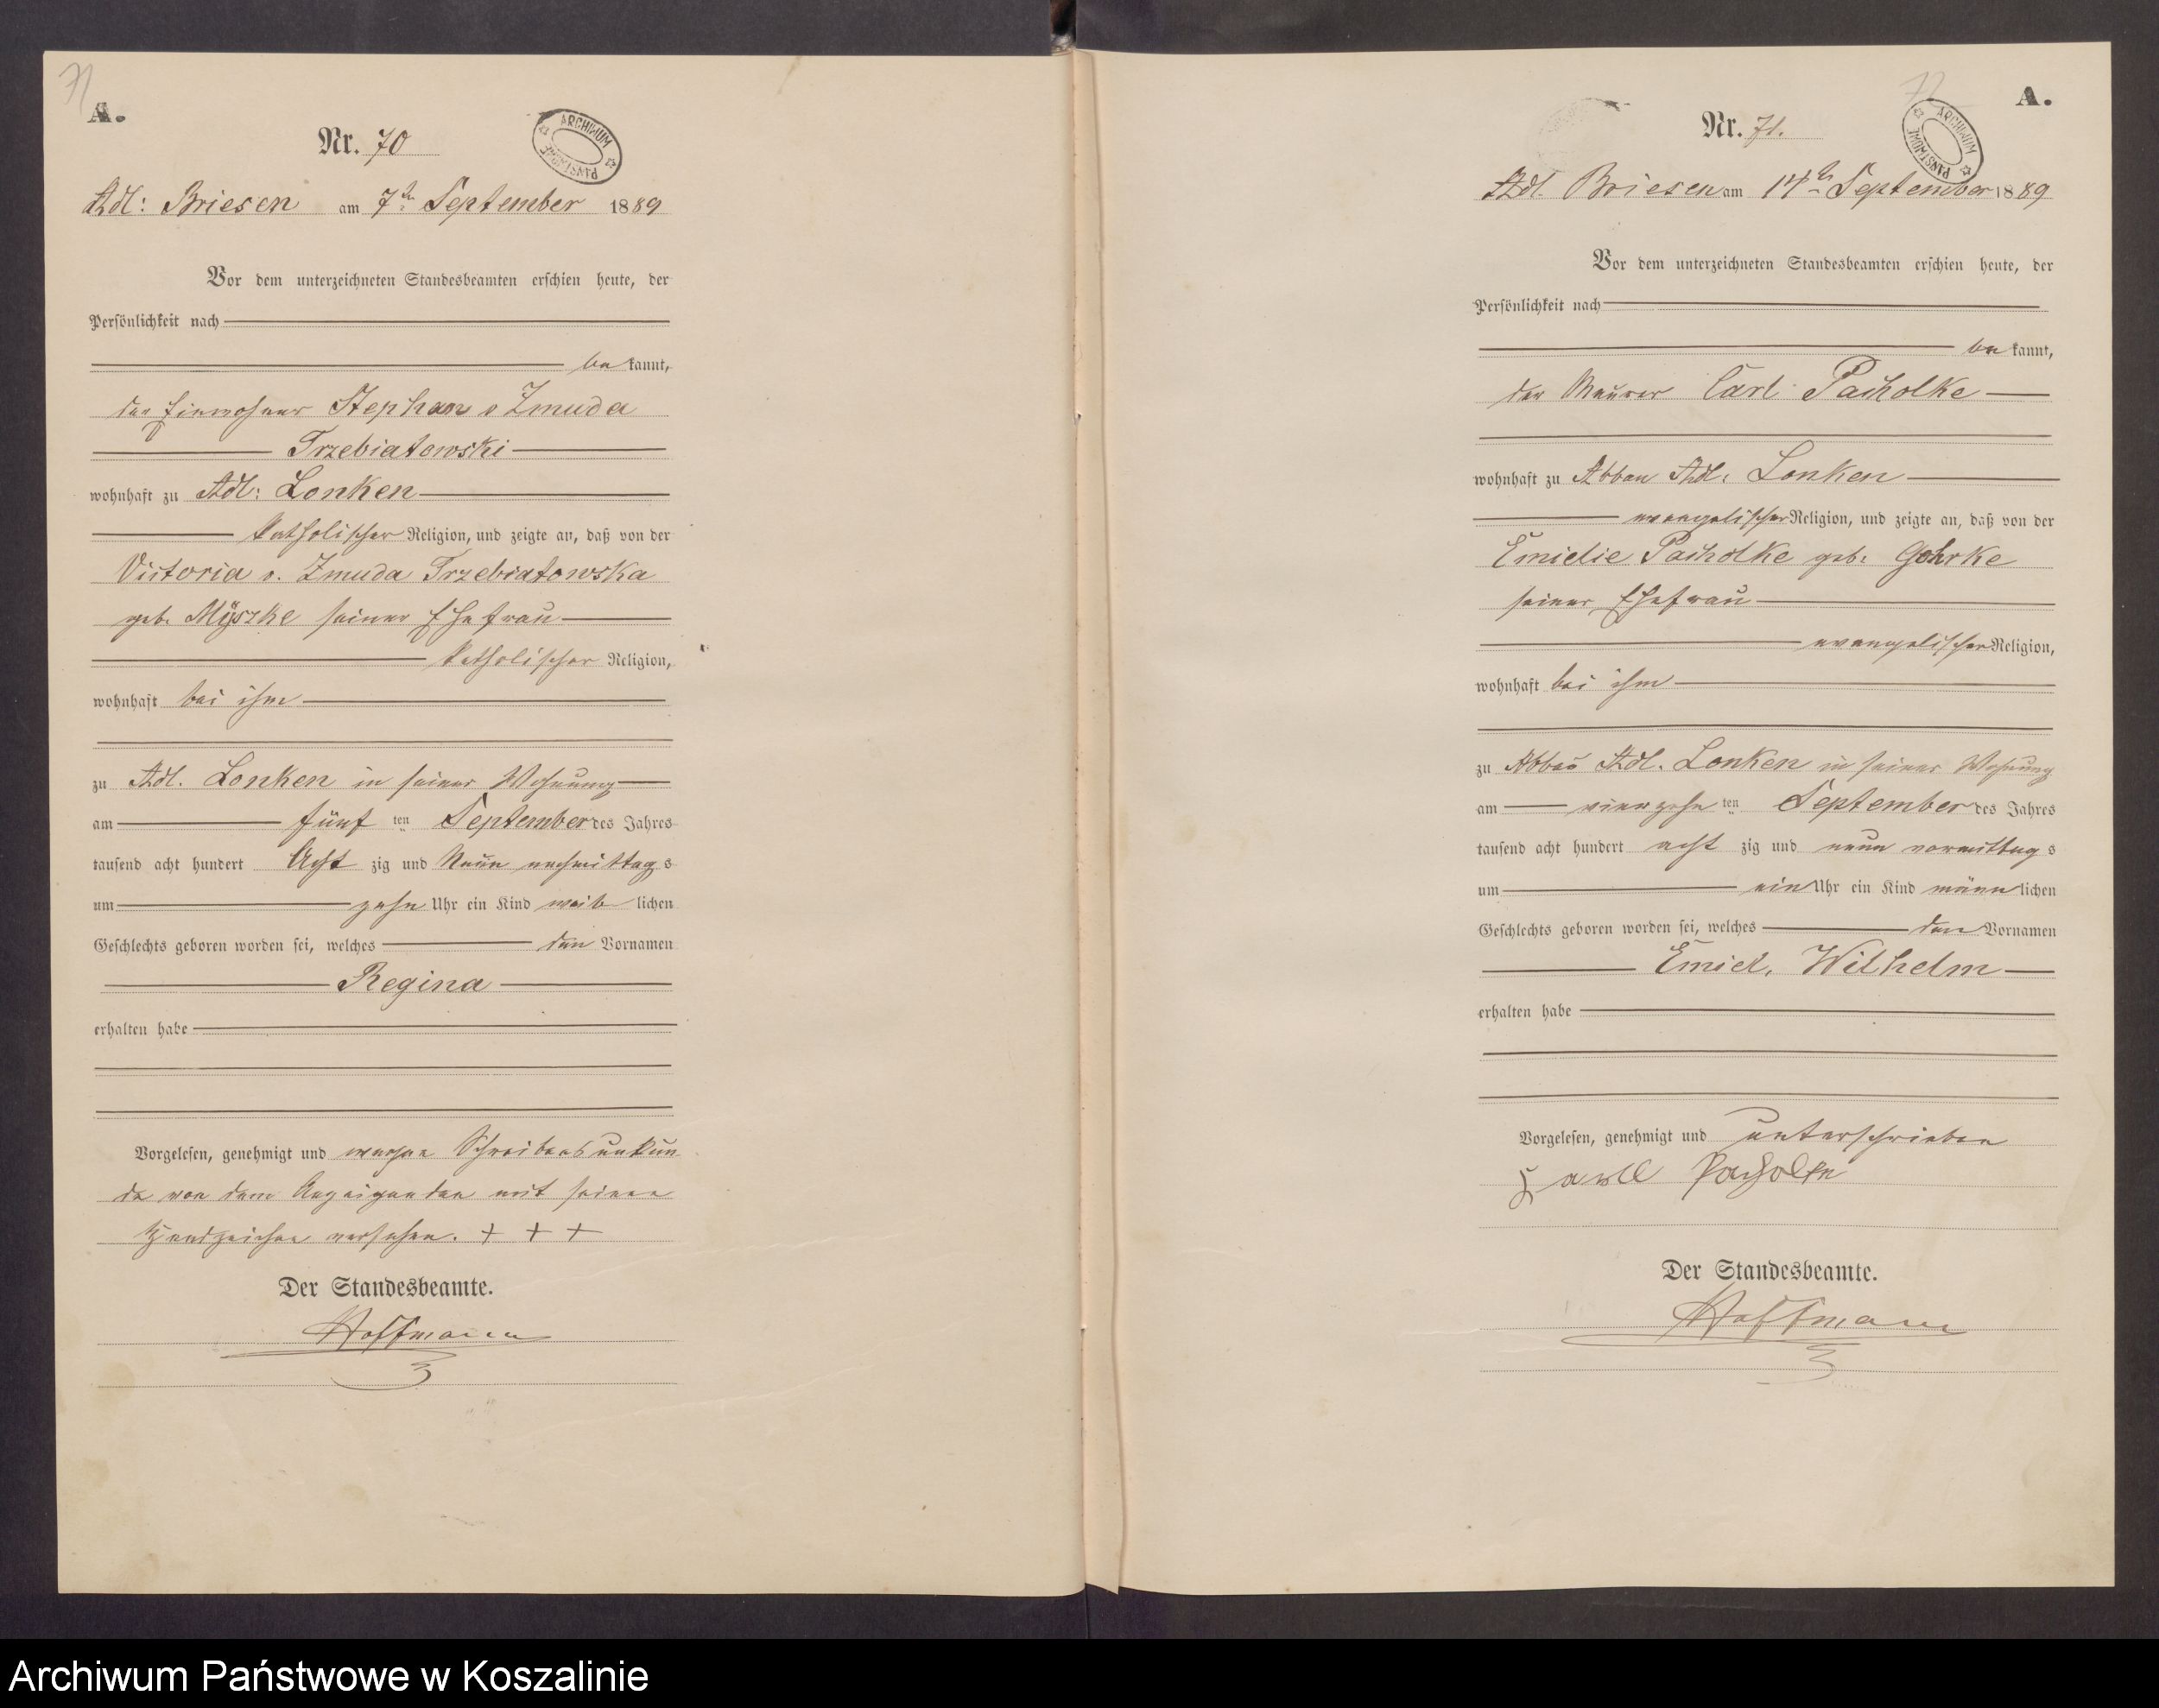 71
A.
Nr. 70
ARCHIWUM PAŃSTWOWE
Adl: Briesen am 7ten September 1889
Vor dem unterzeichneten Standesbeamten erschien heute, der
Persönlichkeit nach
be kannt,
der Einwohner Stephan v Zmuda
Trzebiatowski
wohnhaft zu Adl: Lonken
katholischer Religion, und zeigte an, daß von der
Victoria v. Zmuda Trzebiatowska
geb. Myszke seiner Ehefrau
katholischer Religion,
wohnhaft bei ihm
zu Adl. Lonken in seiner Wohnung
am fünf ten September des Jahres
tausend acht hundert Acht zig und Neun nachmittags
um zehn Uhr ein Kind weib lichen
Geschlechts geboren worden sei, welches den Vornamen
Regina
erhalten habe
Vorgelesen, genehmigt und wegen Schreibensunkun
de von dem Anzeigenden mit seinen
Handzeichen versehen. + + +
Der Standesbeamte.
Hoffmann
72
A.
Nr. 71.
ARCHIWUM PAŃSTWOWE
Adl. Briesen am 14ten September 1889
Vor dem unterzeichneten Standesbeamten erschien heute, der
Persönlichkeit nach
be kannt,
der Maurer Carl Pacholke
wohnhaft zu Abbau Adl. Lonken
evangelischer Religion, und zeigte an, daß von der
Emielie Pacholke geb. Gehrke
seiner Ehefrau
evangelischer Religion,
wohnhaft bei ihm
zu Abbau Adl. Lonken in seiner Wohnung
am vierzehn ten September des Jahres
tausend acht hundert acht zig und neun vormittags
um ein Uhr ein Kind männ lichen
Geschlechts geboren worden sei, welches den Vornamen
Emiel, Wilhelm
erhalten habe
Vorgelesen, genehmigt und unterschrieben
Karll Pacholke
Der Standesbeamte.
Hoffmann
Archiwum Państwowe w Koszalinie